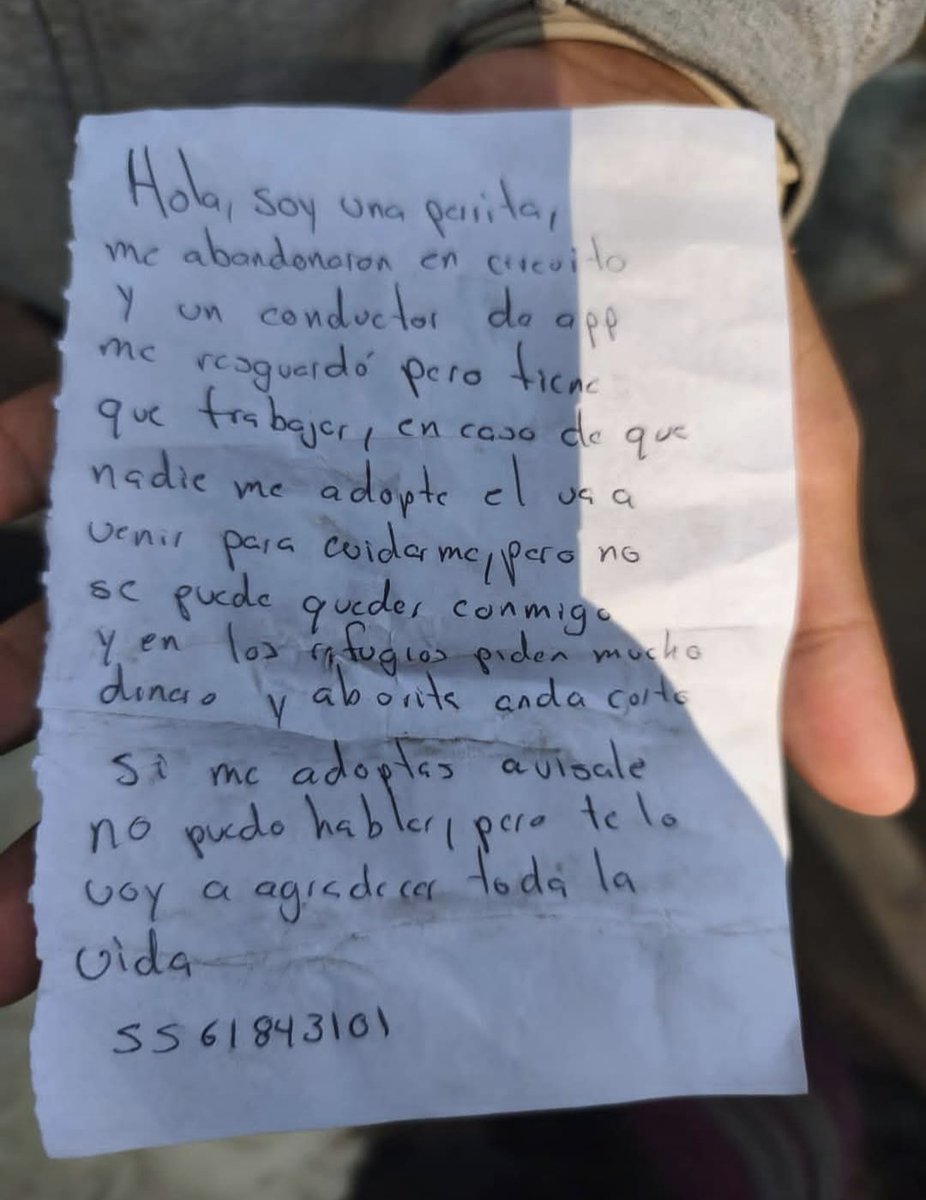 Hola, soy una perrita,
me abandonaron en circuito
y un conductor de app
me resguardó pero tiene
que trabajar, en caso de que
nadie me adopte el va a
venir para cuidarme, pero no
se puede quedar conmigo
y en los refugios piden mucho
dinero y ahorita anda corto
si me adoptas avisale
no puedo hablar, pero te lo
voy a agradecer toda la
vida
5561843101